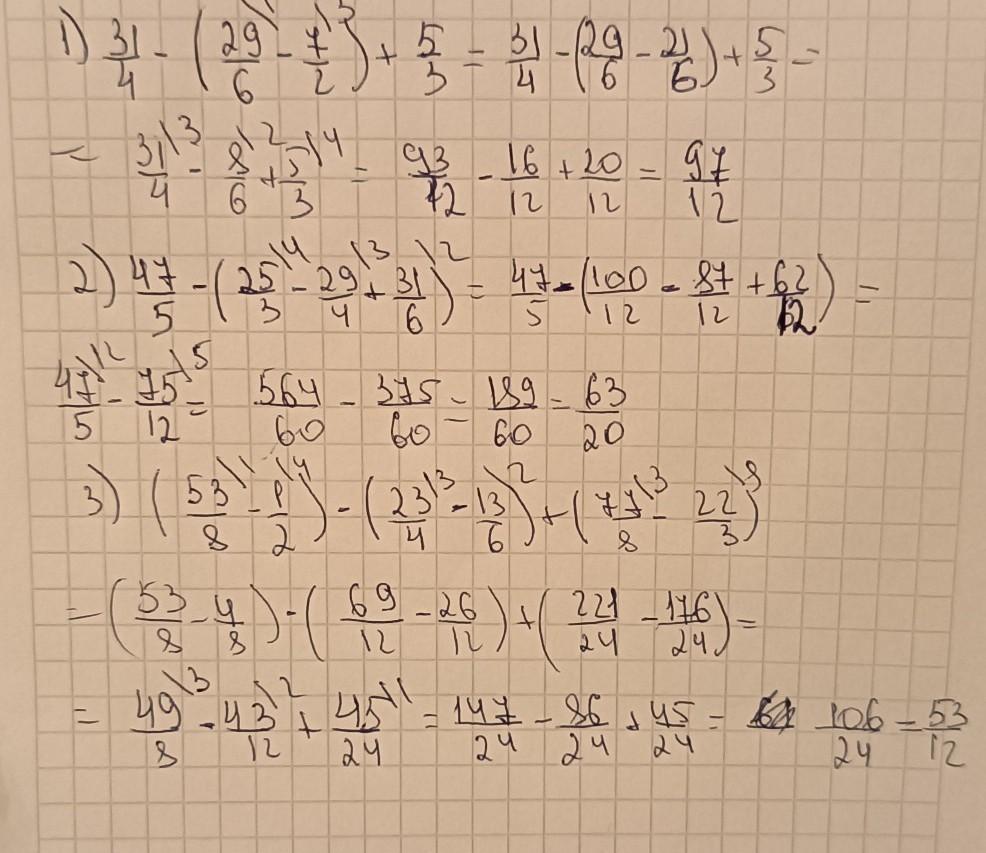 1) 31/4 - (29/6\1 - 7/2\3) + 5/3 = 31/4 - (29/6 - 21/6) + 5/3 =
= 31/4\3 - 8/6\2 + 5/3\4 = 93/12 - 16/12 + 20/12 = 97/12
2) 47/5 - (25/3\4 - 29/4\3 + 31/6\2) = 47/5 - (100/12 - 87/12 + 62/12) =
47/5\12 - 75/12\5 = 564/60 - 375/60 = 189/60 = 63/20
3) (53/8\1 - 1/2\4) - (23/4\3 - 13/6\2) + (77/8\3 - 22/3\8)
= (53/8 - 4/8) - (69/12 - 26/12) + (221/24 - 176/24) =
= 49/8\3 - 43/12\2 + 45/24\1 = 147/24 - 86/24 + 45/24 = 106/24 = 53/12